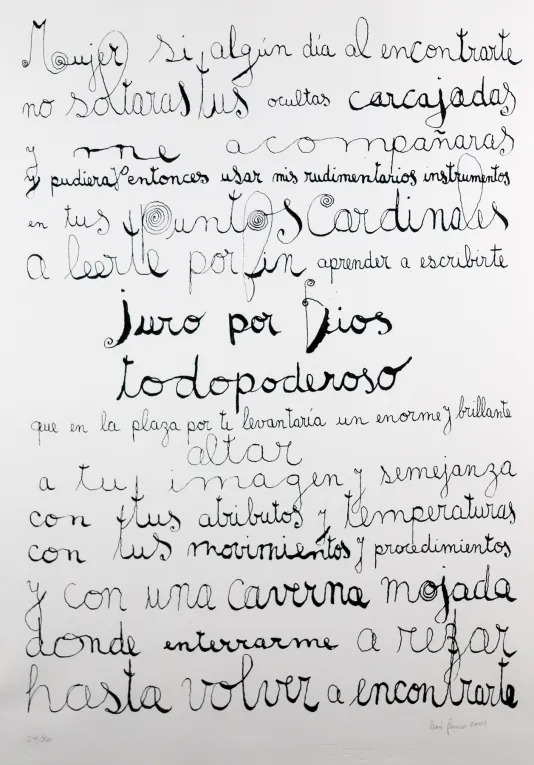 Mujer si algún día al encontrarte
no soltaras tus ocultas carcajadas
y me acompañaras
y pudiera entonces usar mis rudimentarios instrumentos
en tus puntos Cardinales
a leerte por fin aprender a escribirte
juro por Dios
todopoderoso
que en la plaza por ti levantaría un enorme y brillante
altar
a tu imagen y semejanza
con tus atributos y temperaturas
con tus movimientos y procedimientos
y con una caverna mojada
donde enterrarme a rezar
hasta volver a encontrarte